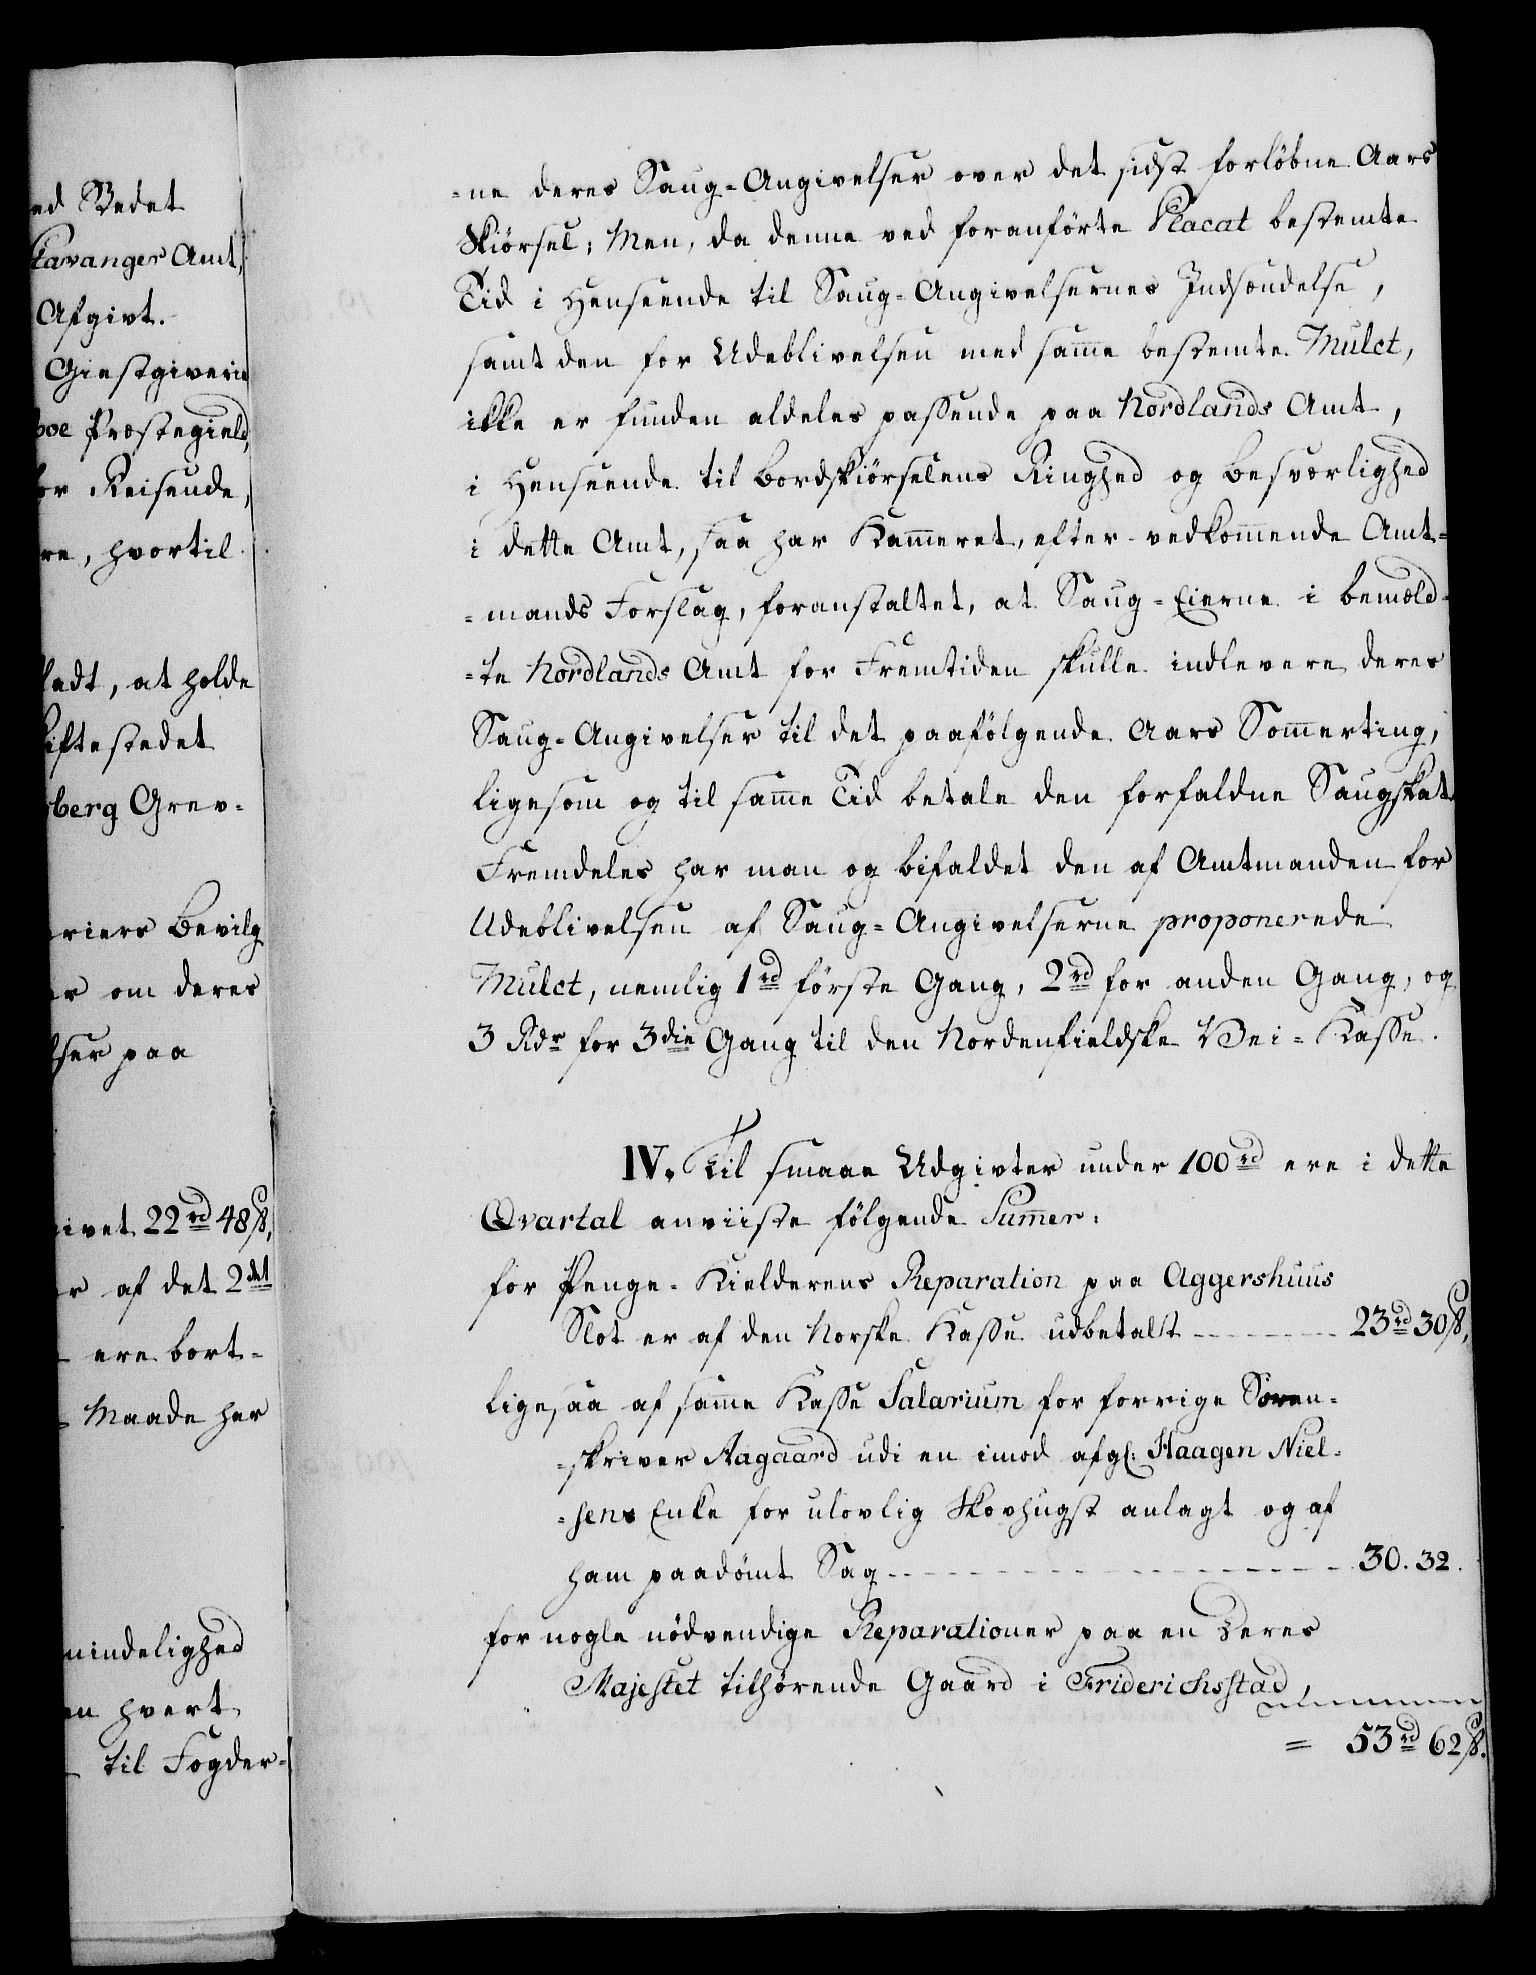 ed Stedet
tavanger Amt,
Afgivt.
Giestgiverie
boe Præstegield,
or Reisende,
re, hvortil
ladt, at holde
iftestedet
sberg Grev-
eriers Bevilg
er om deres
lser paa
ivet 22rd 48ß,
er af det 2det
ere bort-
Maade har
mindelighed
en hvert
til Fogder-
-ne deres Saug-Angivelser over det sidst forløbne Aars
Skiörsel; Men, da denne ved foranförte Placat bestemte
Tid i Henseende til Saug-Angivelsernes Indsendelse,
samt den for Udeblivelsen med samme bestemte Mulct,
ikke er funden aldeles passende paa Nordlands Amt,
i Henseende til Bordskiörselens Ringhed og Besværlighed
i dette Amt, saa har Kammeret, efter vedkommende Amt-
-mands Forslag, foranstaltet, at Saug-Eierne i bemeld-
-te Nordlands Amt for Fremtiden skulle indlevere deres
Saug-Angivelser til det paafölgende Aars Sommerting,
ligesom og til samme Tid betale den forfaldne Saugskat.
Fremdeles har man og bifaldet den af Amtmanden for
Udeblivelsen af Saug-Angivelserne proponerede
Mulct, nemlig 1rd förste Gang, 2rd for anden Gang, og
3 Rdr for 3die Gang til den Nordenfieldske Vei-Kasse.
IV. Til smaae Udgivter under 100rd ere i dette
Qvartal anviiste fölgende Summer:
for Penge-Kielderens Reparation paa Aggershuus
Slot er af den Norske Kasse udbetalt 23rd 30ß,
ligesaa af samme Kasse Salarium for forrige Soren-
-skriver Aagaard udi en imod afgl: Haagen Niel-
-sens Enke for ulovlig Skovhugst anlagt og af
ham paadömt Sag 30. 32.
for nogle nödvendige Reparationer paa en Deres
Majestet tilhörende Gaard i Friderichsstad,
= 53rd 62ß.